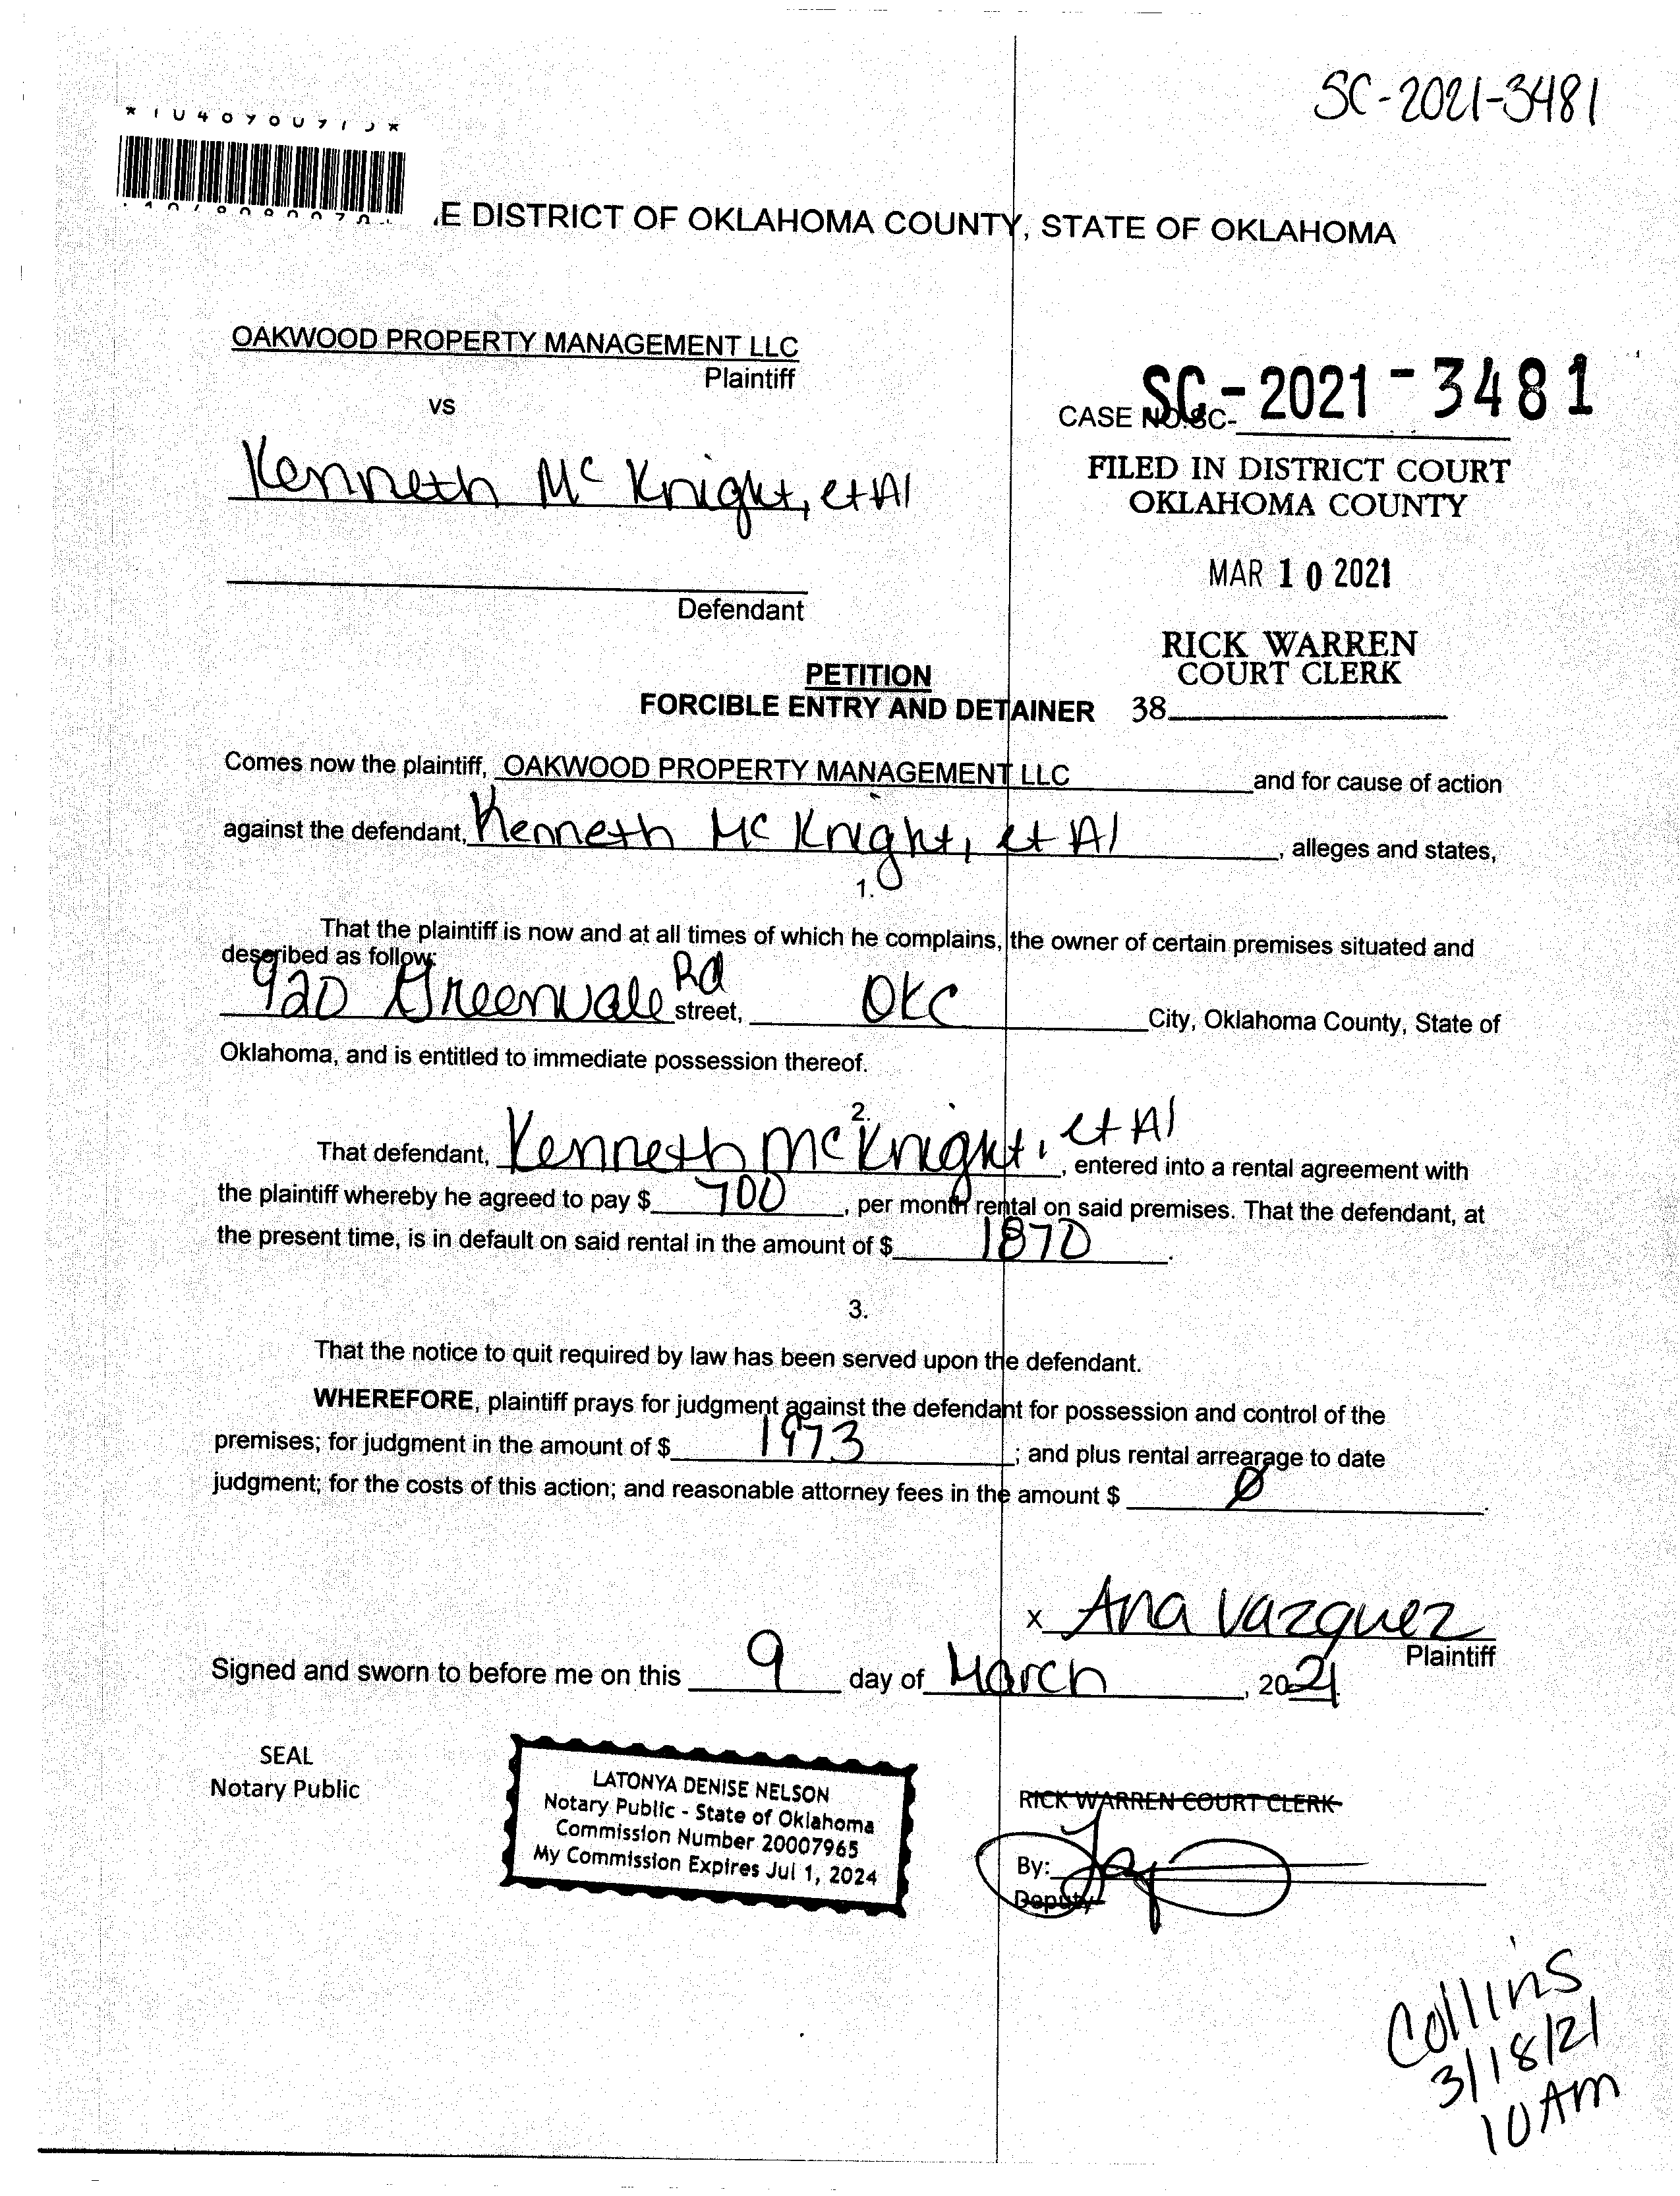 SC-2021-3481
E DISTRICT OF OKLAHOMA COUNTY, STATE OF OKLAHOMA
OAKWOOD PROPERTY MANAGEMENT LLC
Plaintiff
vs
CASE NO.SC- SC-2021-3481
Kenneth Mc Knight, et Al
FILED IN DISTRICT COURT
OKLAHOMA COUNTY
MAR 10 2021
Defendant
RICK WARREN
COURT CLERK
38
PETITION
FORCIBLE ENTRY AND DETAINER
Comes now the plaintiff, OAKWOOD PROPERTY MANAGEMENT LLC and for cause of action
against the defendant, Kenneth Mc Knight, et Al, alleges and states,
1.
That the plaintiff is now and at all times of which he complains, the owner of certain premises situated and
described as follow:
920 Greenvale Rd street, OKC City, Oklahoma County, State of
Oklahoma, and is entitled to immediate possession thereof.
2.
That defendant, Kenneth McKnight, et Al, entered into a rental agreement with
the plaintiff whereby he agreed to pay $ 700, per month rental on said premises. That the defendant, at
the present time, is in default on said rental in the amount of $ 1870.
3.
That the notice to quit required by law has been served upon the defendant.
WHEREFORE, plaintiff prays for judgment against the defendant for possession and control of the
premises; for judgment in the amount of $ 1973; and plus rental arrearage to date
judgment; for the costs of this action; and reasonable attorney fees in the amount $ Ø.
x Ana Vazquez
Plaintiff
Signed and sworn to before me on this 9 day of March, 2021
SEAL
Notary Public
LATONYA DENISE NELSON
Notary Public - State of Oklahoma
Commission Number 20007965
My Commission Expires Jul 1, 2024
RICK WARREN COURT CLERK
By:
Deputy
Collins
3/18/21
10 AM